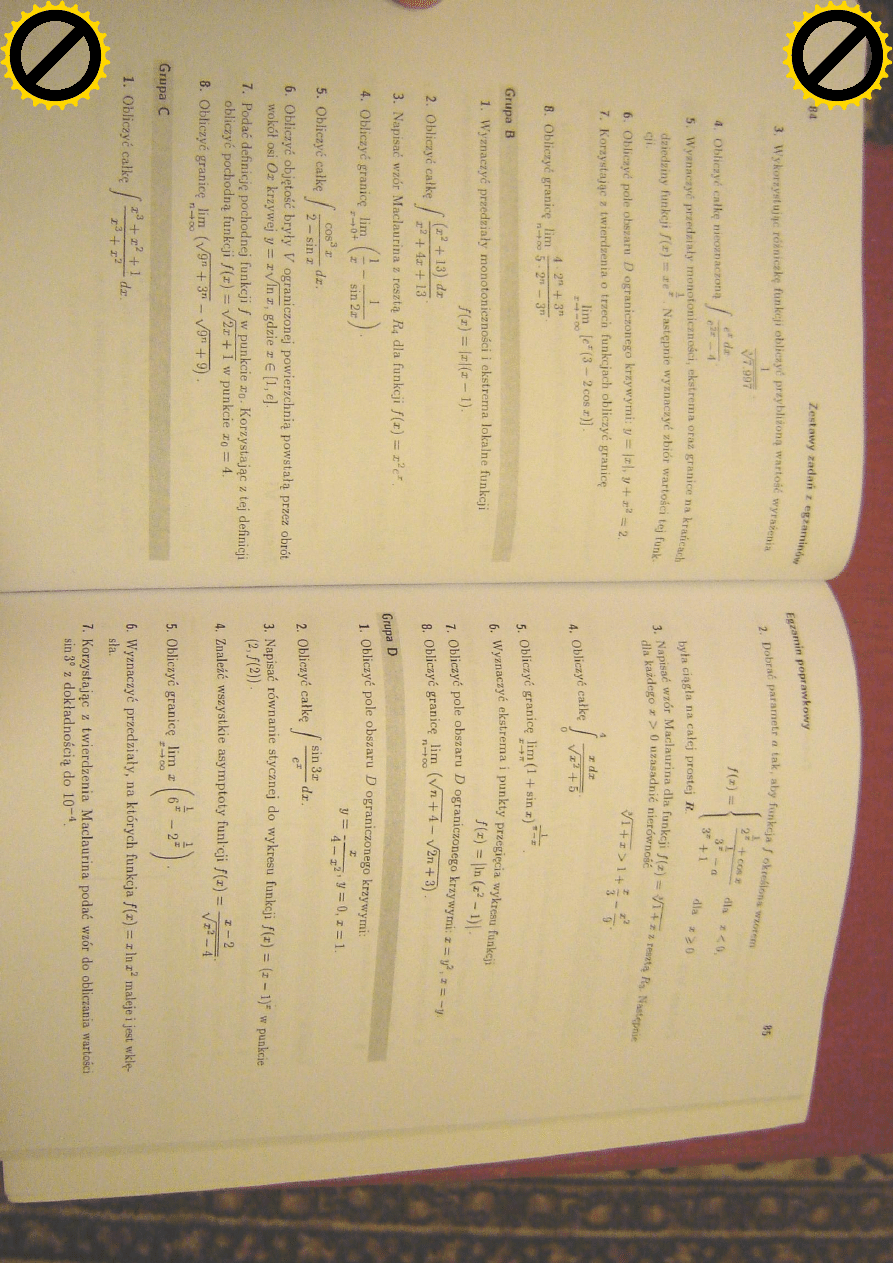 84 Zestawy zadań z egzaminów
3. Wykorzystując różniczkę funkcji obliczyć przybliżoną wartość wyrażenia
1/∛7,997
4. Obliczyć całkę nieoznaczoną ∫ e^x dx / (e^{2x} − 4)
5. Wyznaczyć przedziały monotoniczności, ekstrema oraz granice na krańcach
dziedziny funkcji f(x) = xe^{1/x}. Następnie wyznaczyć zbiór wartości tej funk-
cji.
6. Obliczyć pole obszaru D ograniczonego krzywymi: y = |x|, y + x² = 2.
7. Korzystając z twierdzenia o trzech funkcjach obliczyć granicę
lim_{x→−∞} [e^x(3 − 2 cos x)].
8. Obliczyć granicę lim_{n→∞} (4 · 2ⁿ + 3ⁿ)/(5 · 2ⁿ − 3ⁿ)
Grupa B
1. Wyznaczyć przedziały monotoniczności i ekstrema lokalne funkcji
f(x) = |x|(x − 1).
2. Obliczyć całkę ∫ (x² + 13) dx / (x² + 4x + 13)
3. Napisać wzór Maclaurina z resztą R₄ dla funkcji f(x) = x²e^x.
4. Obliczyć granicę lim_{x→0⁺} (1/x − 1/sin 2x).
5. Obliczyć całkę ∫ cos³ x / (2 − sin x) dx.
6. Obliczyć objętość bryły V ograniczonej powierzchnią powstałą przez obrót
wokół osi Ox krzywej y = x√ln x, gdzie x ∈ [1, e].
7. Podać definicję pochodnej funkcji f w punkcie x₀. Korzystając z tej definicji
obliczyć pochodną funkcji f(x) = √(2x + 1) w punkcie x₀ = 4.
8. Obliczyć granicę lim_{n→∞} (√(9ⁿ + 3ⁿ) − √(9ⁿ + 9)).
Grupa C
1. Obliczyć całkę ∫ (x³ + x² + 1)/(x³ + x²) dx.
Egzamin poprawkowy 85
2. Dobrać parametr a tak, aby funkcja f określona wzorem
dla x < 0,
3^x + 1 dla x ⩾ 0
była ciągła na całej prostej R.
3. Napisać wzór Maclaurina dla funkcji f(x) = ∛(1 + x) z resztą R₃. Następnie
dla każdego x > 0 uzasadnić nierówność
∛(1 + x) > 1 + x/3 − x²/9.
4. Obliczyć całkę ∫₀⁴ x dx / √(x² + 5)
5. Obliczyć granicę lim_{x→π} (1 + sin x)^{1/(π−x)}.
6. Wyznaczyć ekstrema i punkty przegięcia wykresu funkcji
f(x) = |ln (x² − 1)|.
7. Obliczyć pole obszaru D ograniczonego krzywymi: x = y², x = −y.
8. Obliczyć granicę lim_{n→∞} (√(n + 4) − √(2n + 3)).
Grupa D
1. Obliczyć pole obszaru D ograniczonego krzywymi:
y = x/(4 − x²), y = 0, x = 1.
2. Obliczyć całkę ∫ sin 3x / e^x dx.
3. Napisać równanie stycznej do wykresu funkcji f(x) = (x − 1)^x w punkcie
(2, f(2)).
4. Znaleźć wszystkie asymptoty funkcji f(x) = (x − 2)/√(x² − 4).
5. Obliczyć granicę lim_{x→∞} x (6^{1/x} − 2^{1/x}).
6. Wyznaczyć przedziały, na których funkcja f(x) = x ln x² maleje i jest wklę-
sła.
7. Korzystając z twierdzenia Maclaurina podać wzór do obliczania wartości
sin 3° z dokładnością do 10⁻⁴.